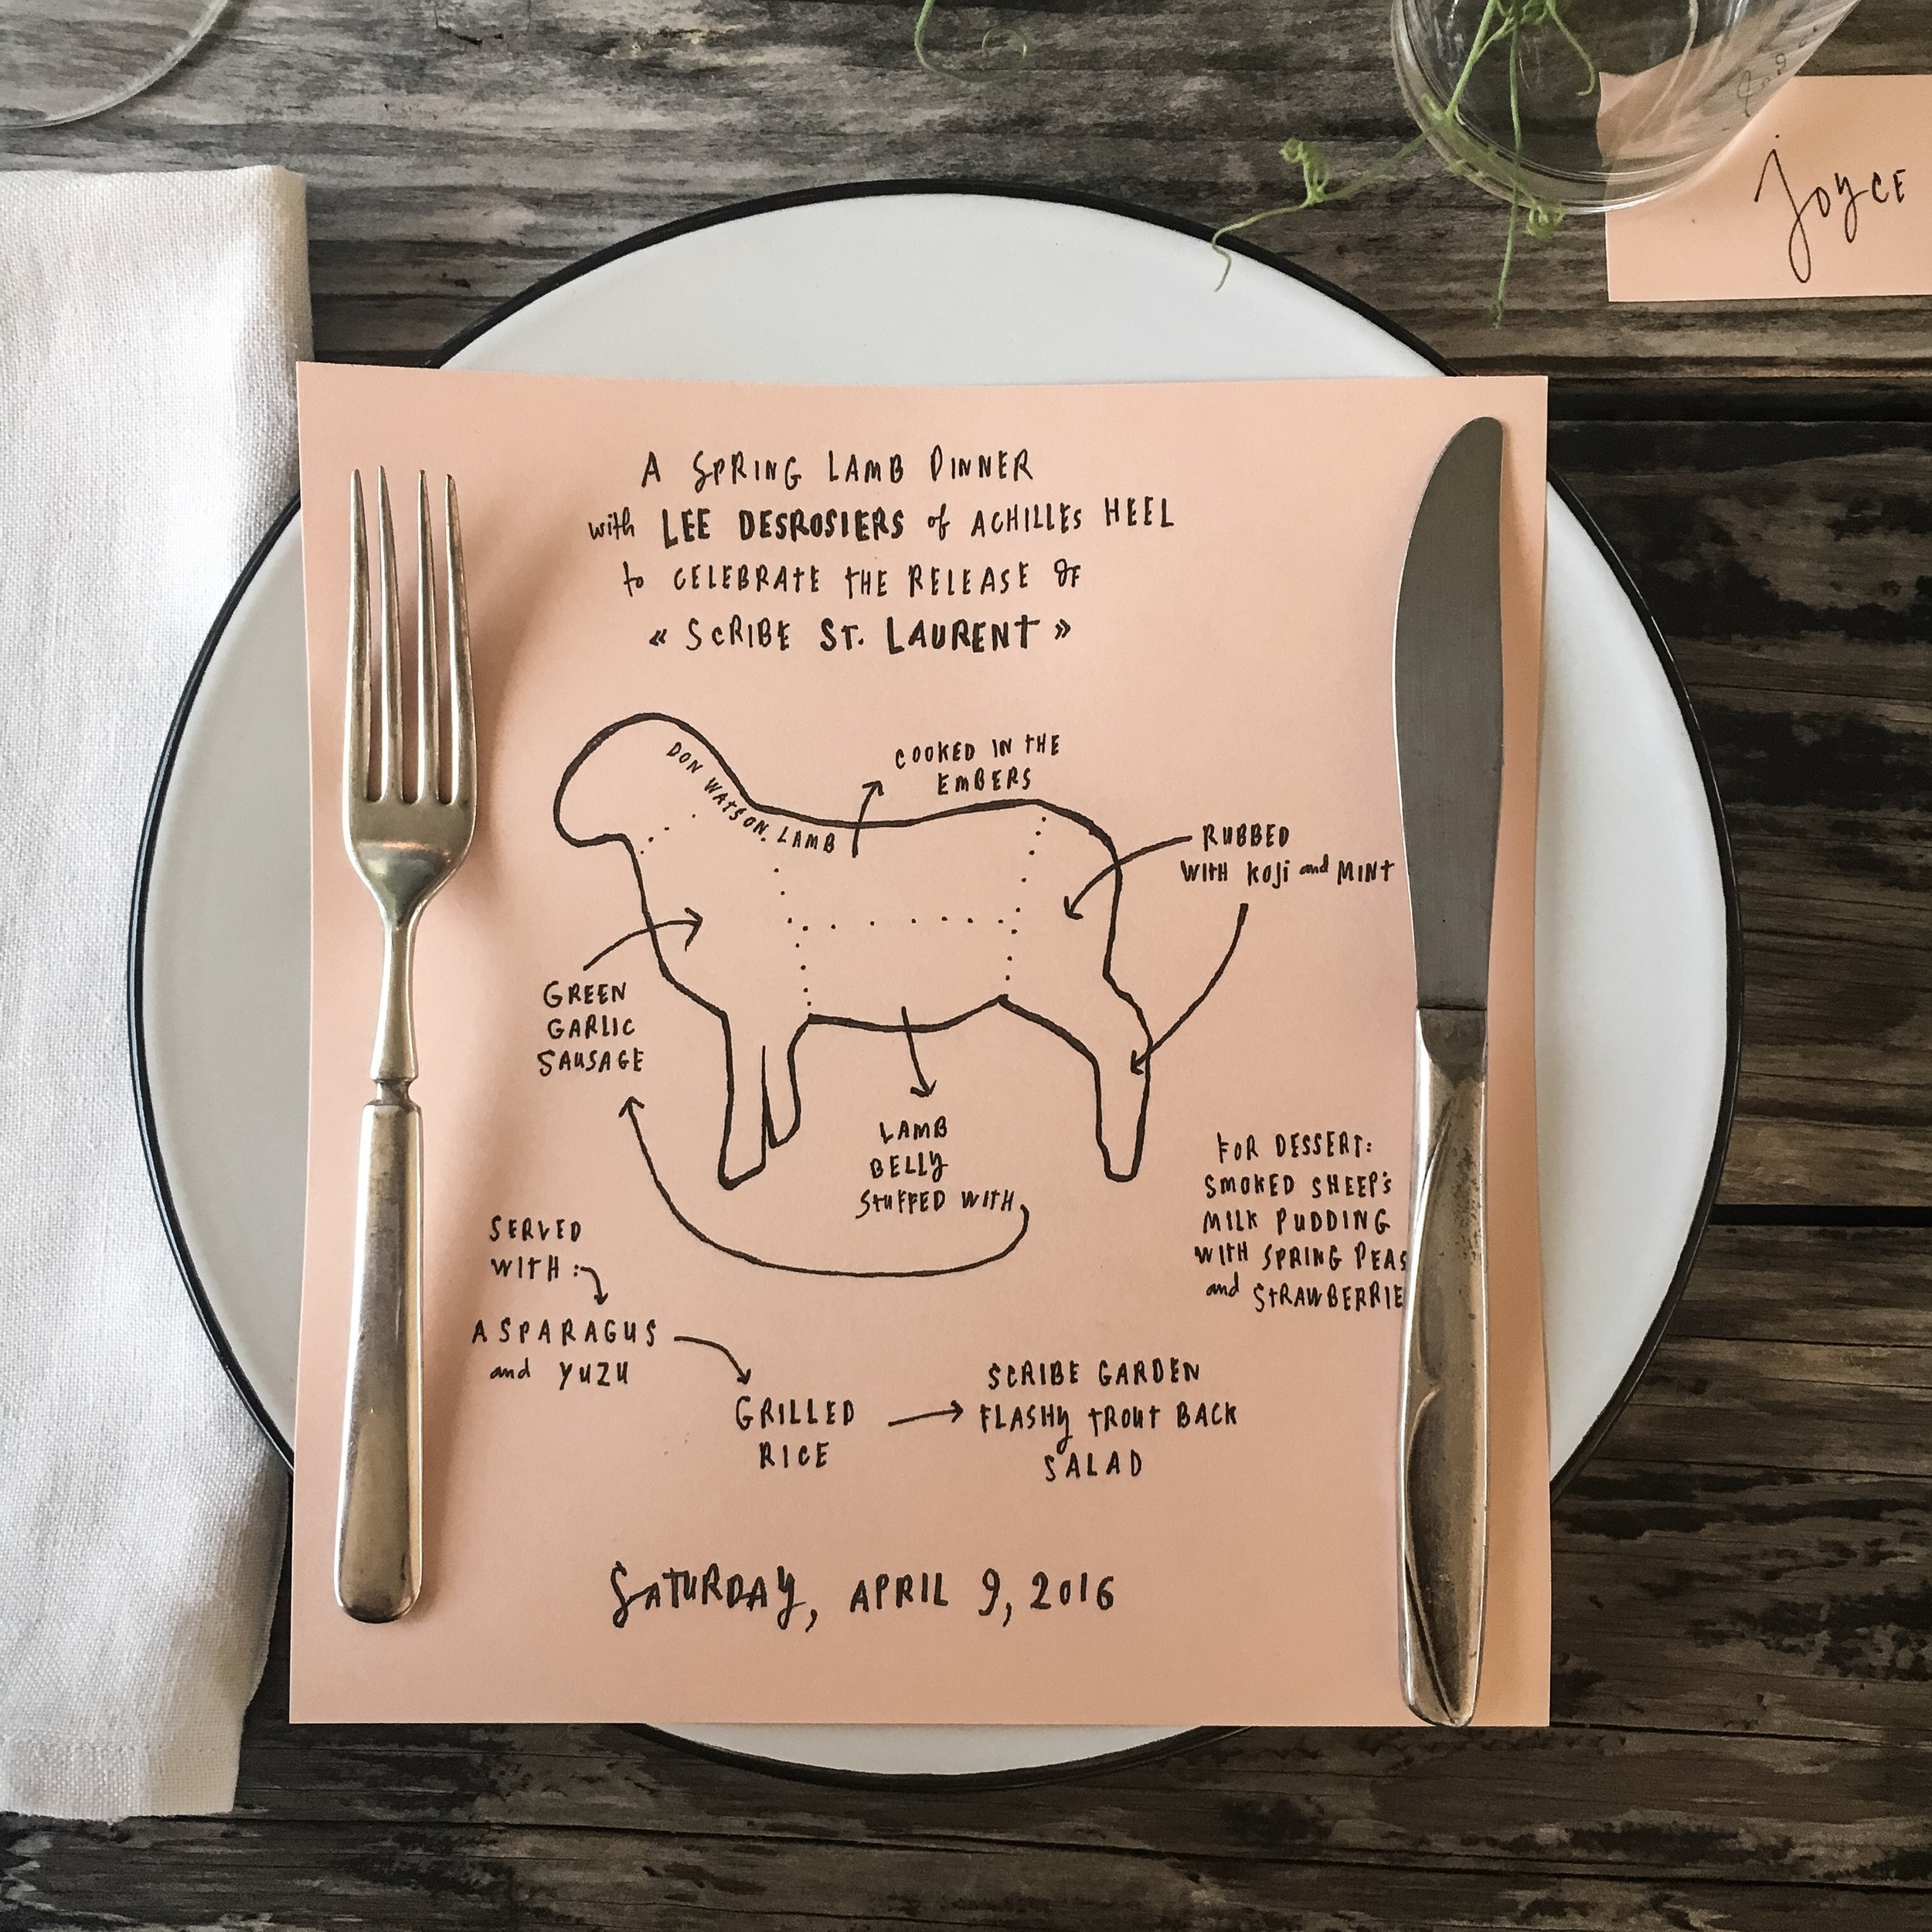 Joyce
A SPRING LAMB DINNER
with LEE DESROSIERS of ACHILLES HEEL
to CELEBRATE THE RELEASE OF
« SCRIBE ST. LAURENT »
DON WATSON LAMB
COOKED IN THE
EMBERS
RUBBED
WITH KOJI and MINT
GREEN
GARLIC
SAUSAGE
LAMB
BELLY
STUFFED WITH
FOR DESSERT:
SMOKED SHEEP'S
MILK PUDDING
WITH SPRING PEAS
and STRAWBERRIE
SERVED
WITH:
ASPARAGUS
and YUZU
GRILLED
RICE
SCRIBE GARDEN
FLASHY TROUT BACK
SALAD
SATURDAY, APRIL 9, 2016